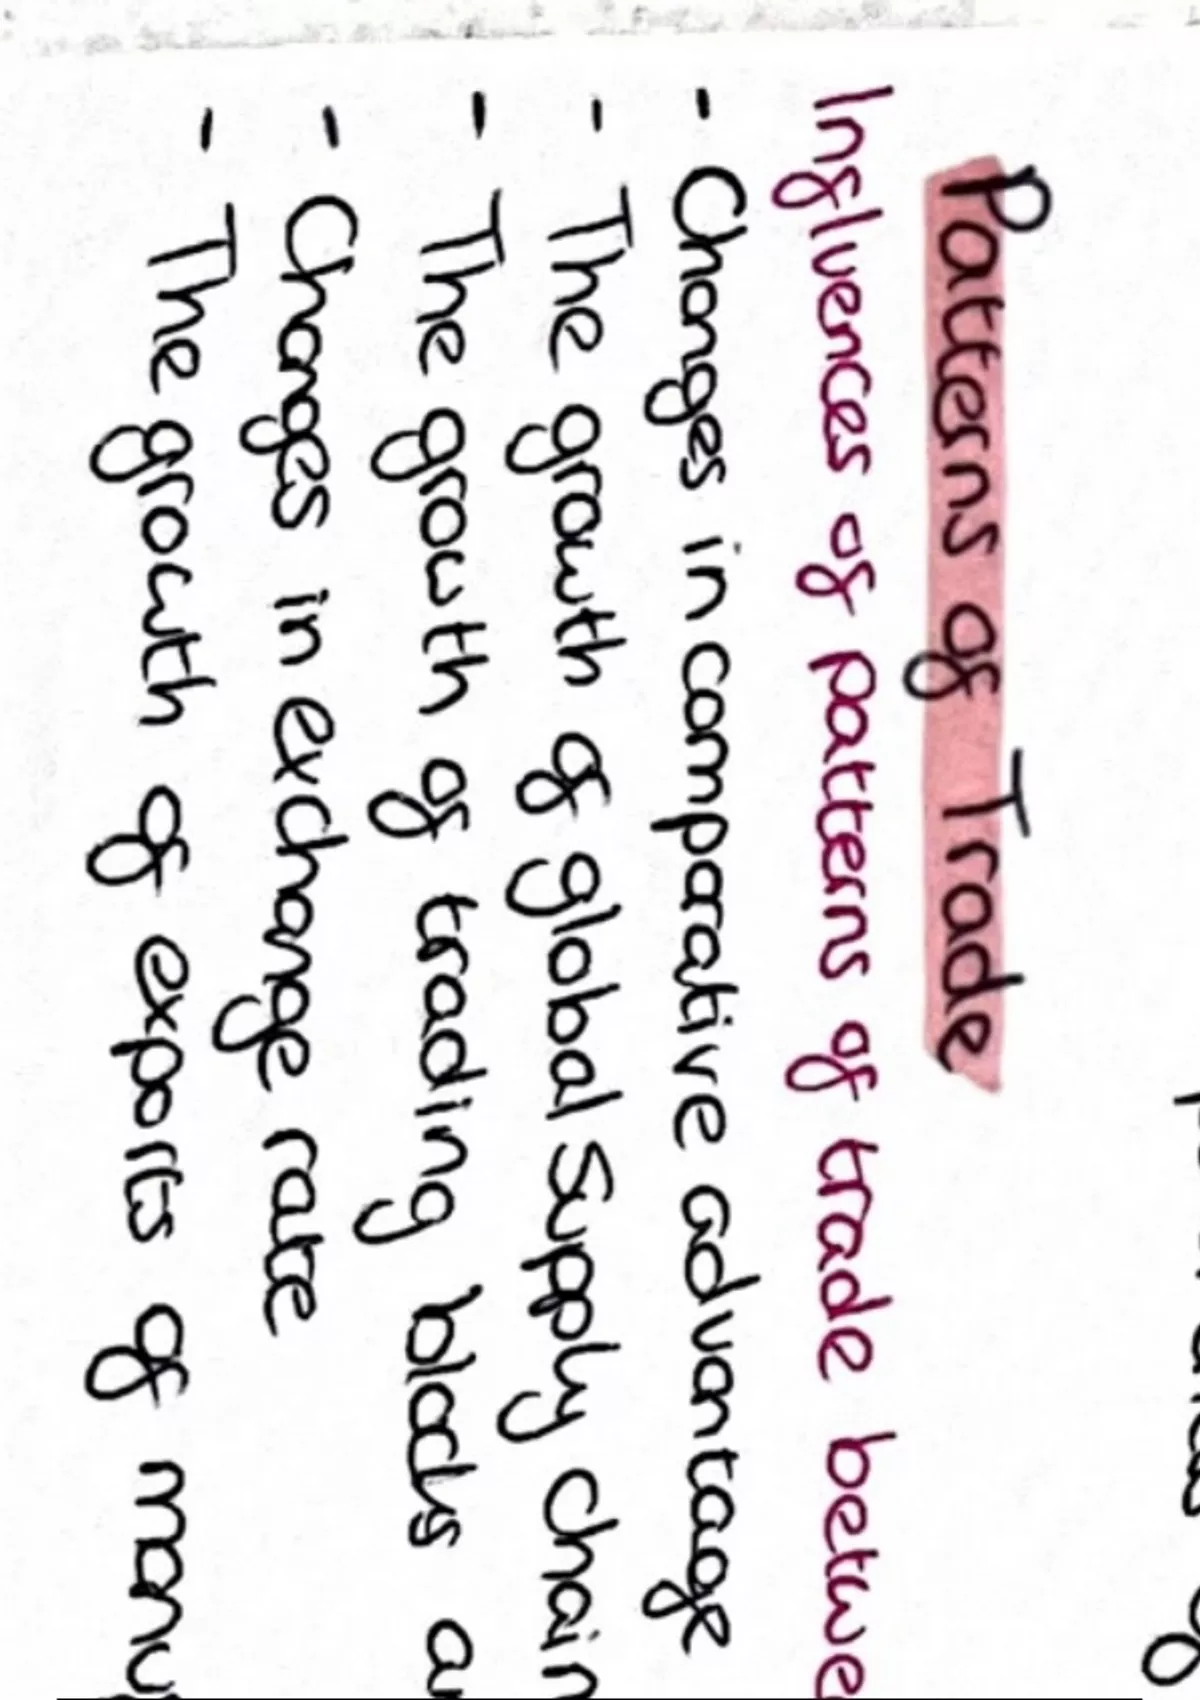 Patterns of Trade
Influences of patterns of trade betwe
- Changes in comparative advantage
- The growth of global supply chain
- The growth of trading blocks a
- Changes in exchange rate
- The growth of exports of manu